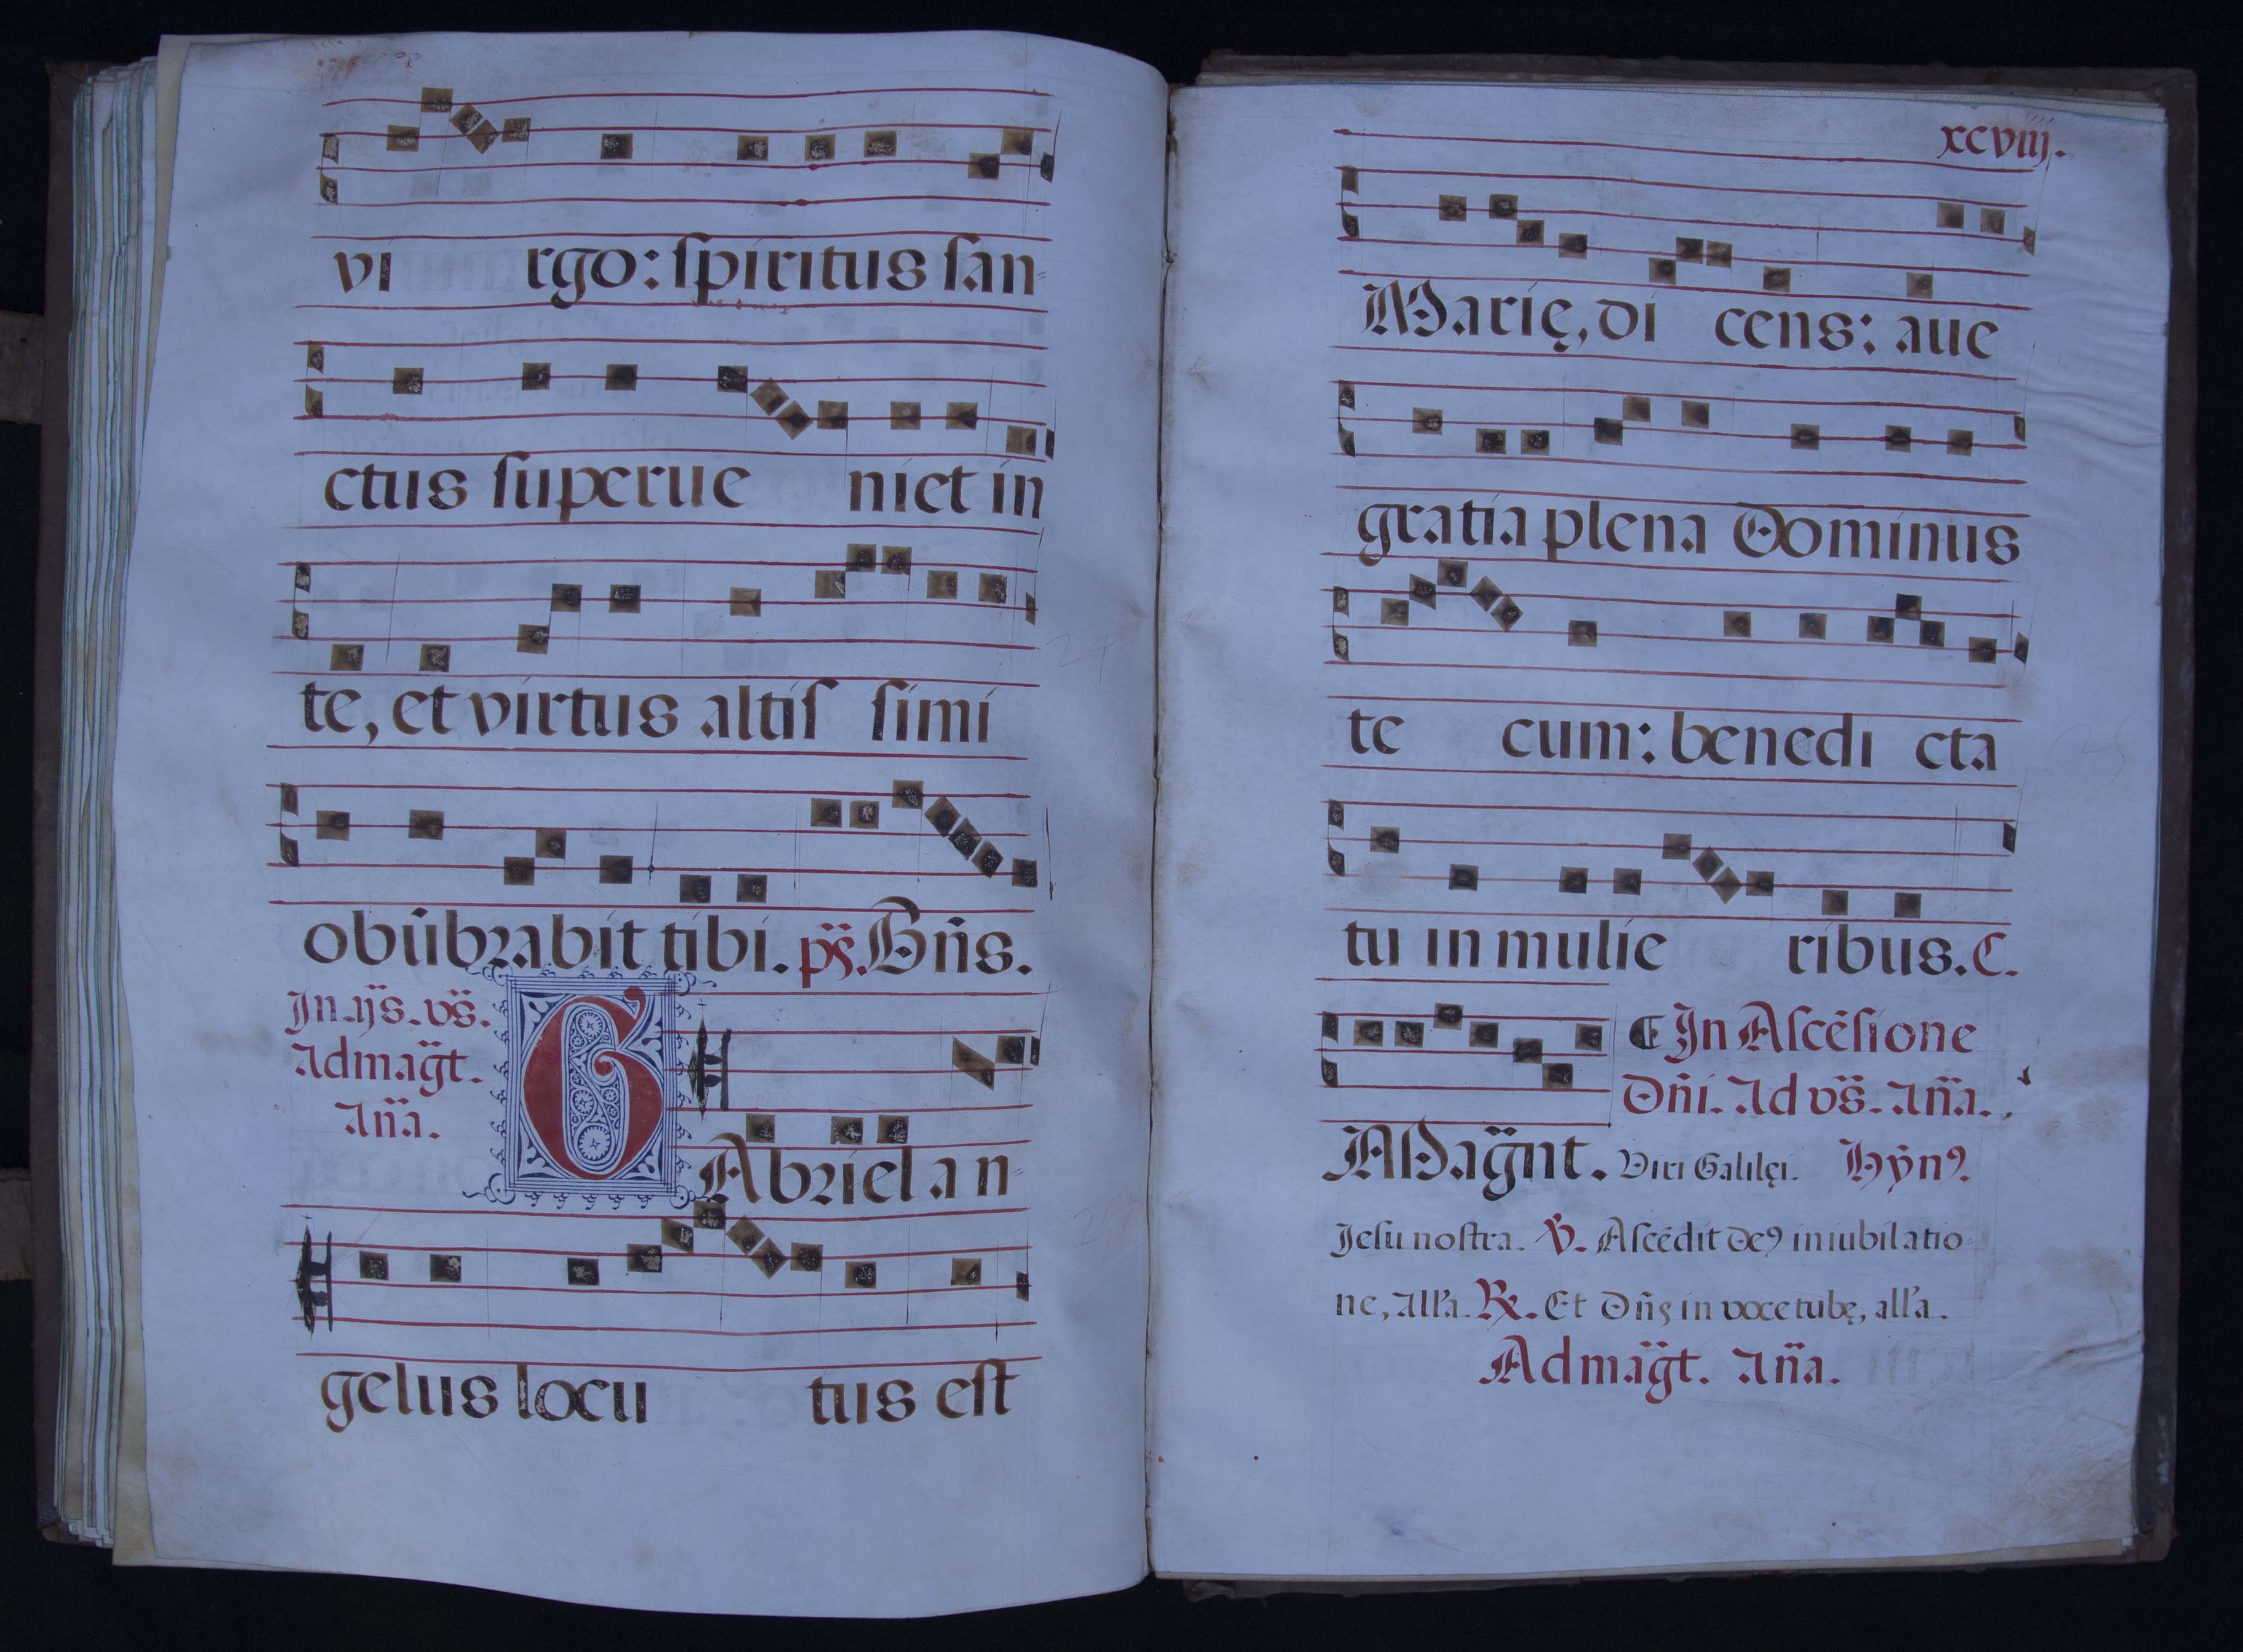 vi rgo: ſpiritus ſan-
ctus ſuperue niet in
te, et virtus altiſ ſimi
obūbrabit tibi. ps̈. Bñs.
In .ijs̈. vs̈.
Ad mag̈t.
An̈a.
GAbriel an-
gelus locu tus eſt
xcviij.
Marię, di cens: aue
gratia plena Dominus
te cum: benedi cta
tu in mulie ribus. C.
In Aſcēſione
Dn̄i. Ad vs̈. An̈a.
Mag̈nt. Viri Galilęi. Hÿn⁹.
Jeſu noſtra. ℣. Aſcēdit De⁹ in iubilatio-
ne, all'a. ℟. Et Dn̄s in voce tubę, all'a.
Ad mag̈t. An̈a.